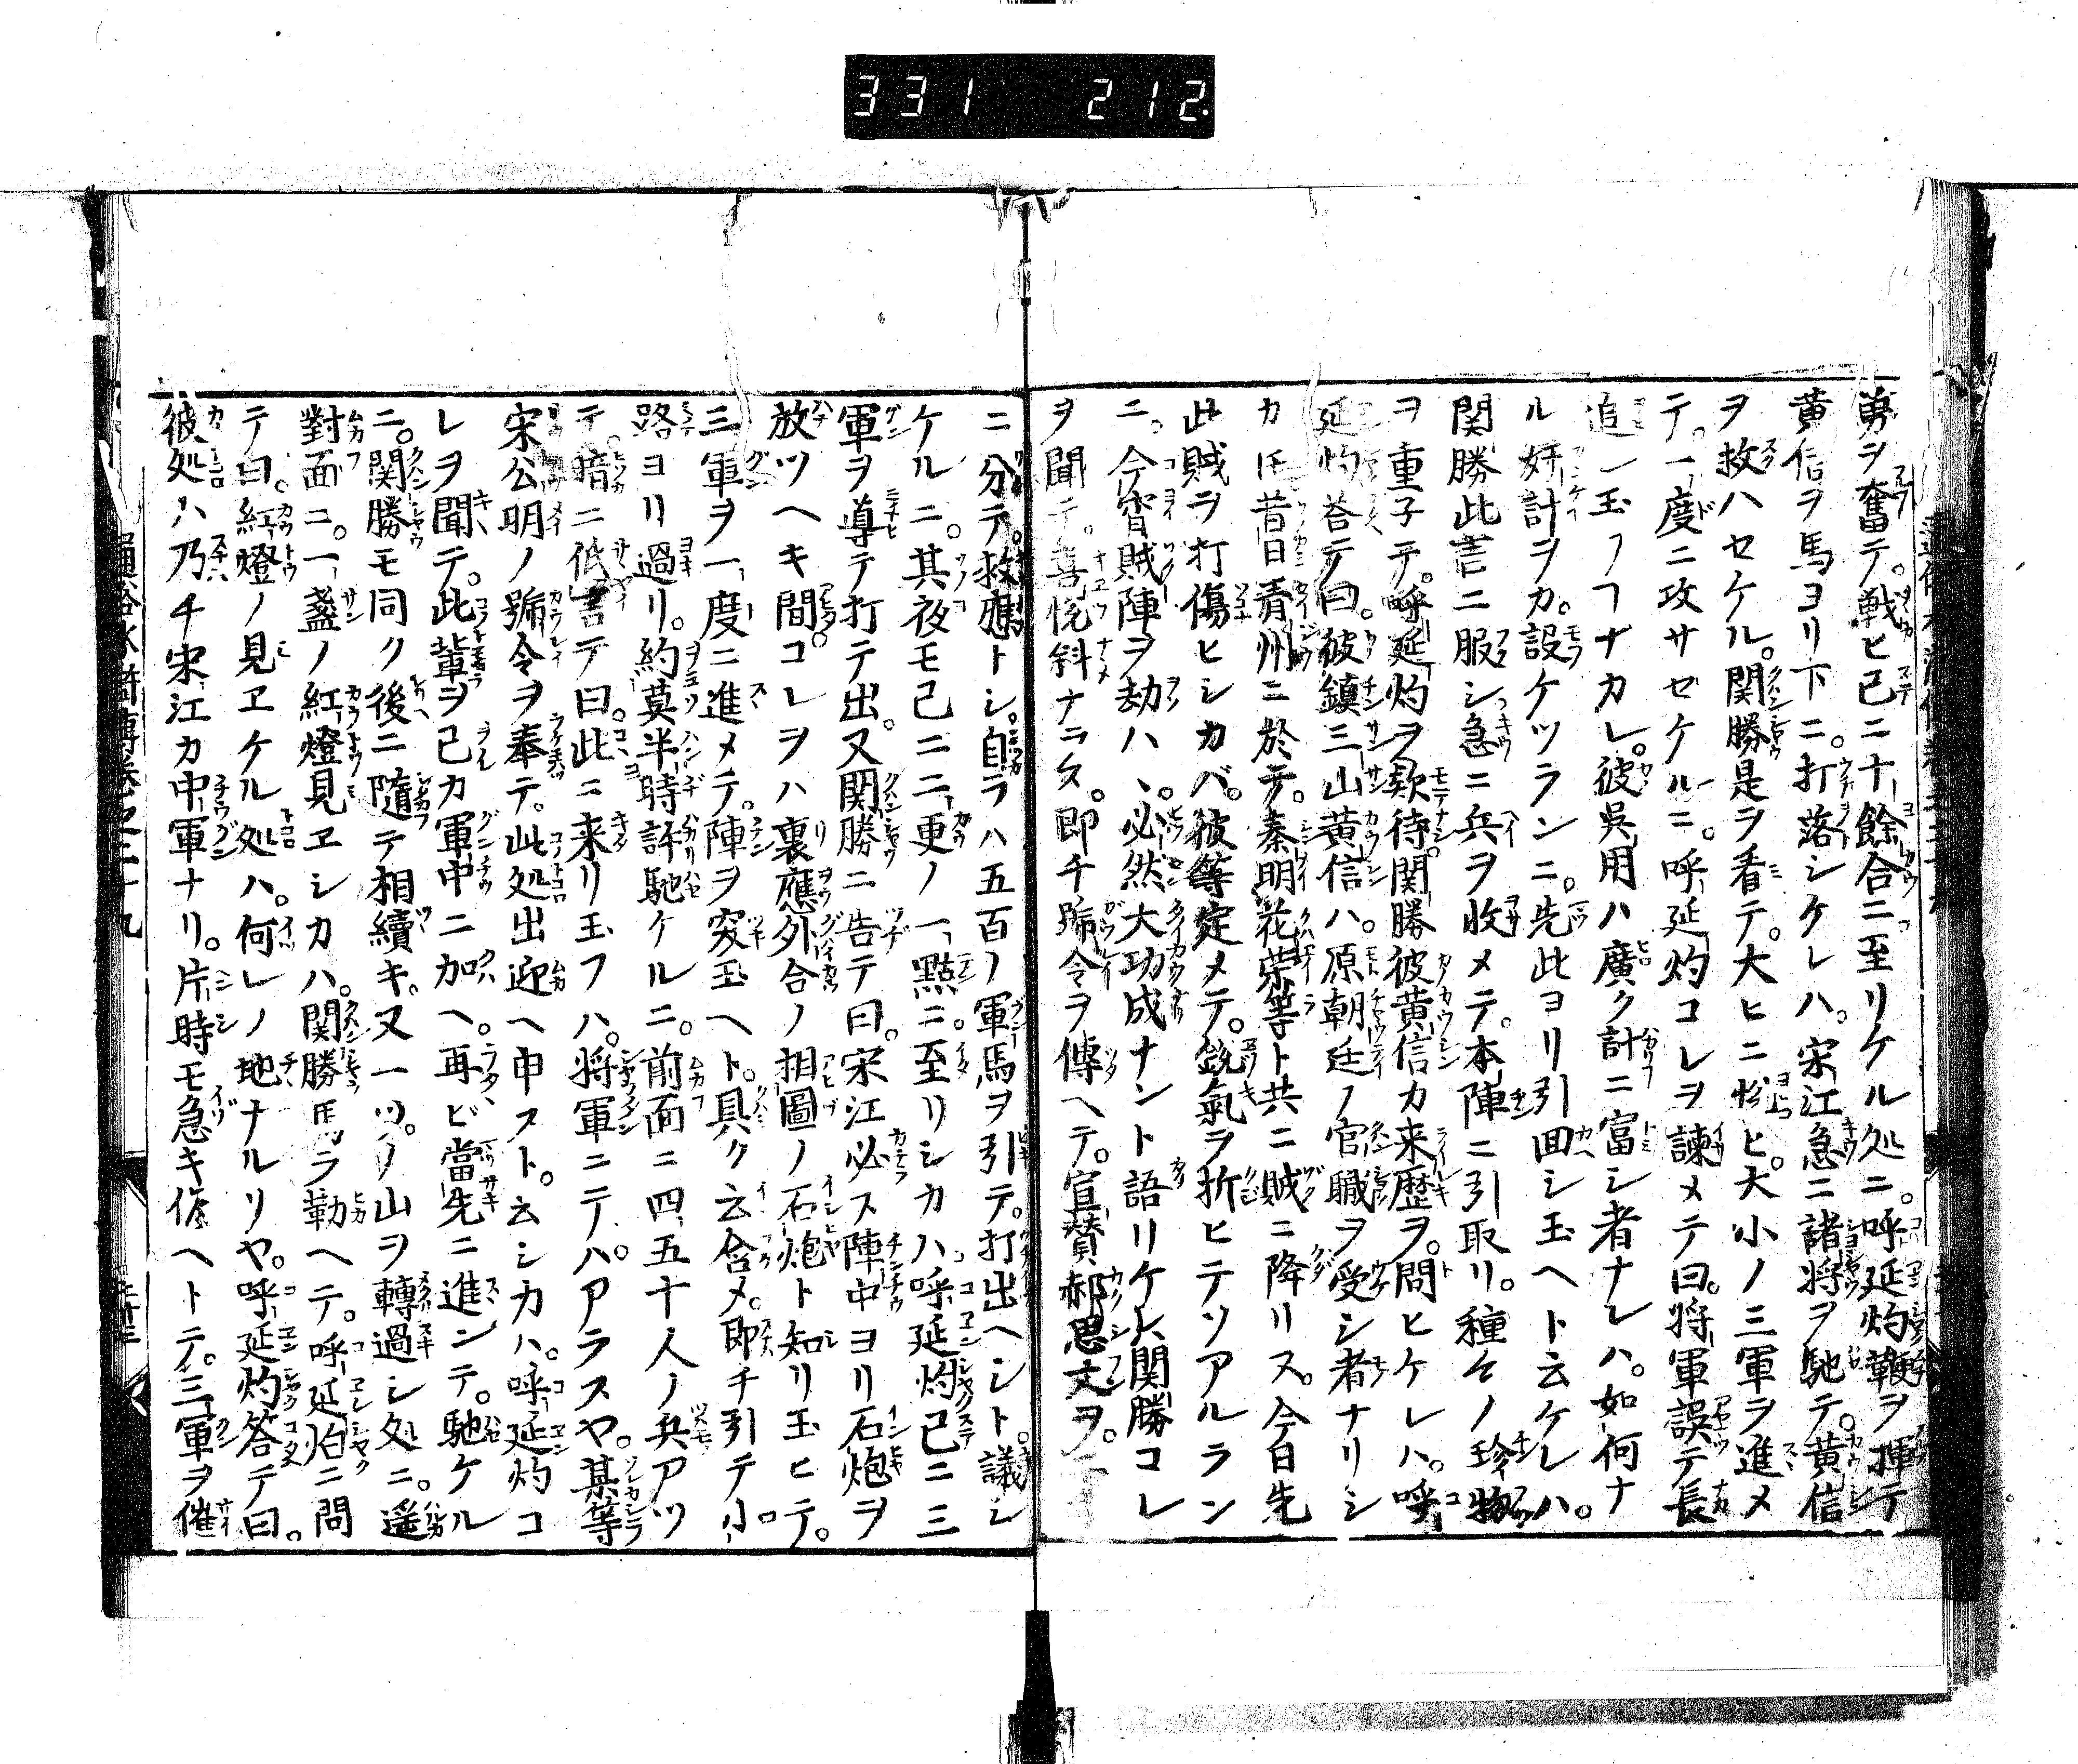 331 212.
勇ヲ奮テ。戦ヒ已ニ十餘合ニ至リケル処ニ。呼延灼鞭ヲ揮テ
黄信ヲ馬ヨリ下ニ。打落シケレハ。宋江急ニ諸将ヲ馳テ。黄信
ヲ救ハセケル。関勝是ヲ看テ。大ヒニ悦ヒ。大小ノ三軍ヲ進メ
テ。一度ニ攻サセケルニ。呼延灼コレヲ諫メテ曰。将軍誤テ長
追シ玉フヿナカレ。彼呉用ハ廣ク計ニ富シ者ナレハ。如何ナ
ル奸計ヲカ。設ケツランニ。先此ヨリ引回シ玉ヘト云ケレハ。
関勝此言ニ服シ急ニ兵ヲ收メテ。本陣ニ引取リ。種々ノ珍物
ヲ重子テ。呼延灼ヲ欵待。関勝彼黄信カ来歴ヲ。問ヒケレハ。呼
延灼荅テ曰。彼鎮三山黄信ハ。原朝廷ノ官職ヲ受シ者ナリシ
カ𪜈昔日青州ニ於テ。秦明花荣等ト共ニ賊ニ降リス。今日先
此賊ヲ打傷ヒシカバ。彼等定メテ。鋭氣ヲ折ヒテソアルラン
ニ。今宵賊陣ヲ劫ハヽ。必然大功成ナント語リケレ𪜈関勝コレ
ヲ聞テ。喜悦斜ナラス。即チ號令ヲ傳ヘテ。宣賛郝思文ヲ。二
ニ分テ。救應トシ。自ラハ五百ノ軍馬ヲ引テ。打出ヘシト。議シ
ケルニ。其夜モ已ニ二更ノ一點ニ。至リシカハ呼延灼已ニ三
軍ヲ導テ打テ出。又関勝ニ告テ曰。宋江必ス陣中ヨリ石炮ヲ
放ツヘキ間。コレヲハ裏應外合ノ相圖ノ石炮ト知リ玉ヒテ。
三軍ヲ一度ニ進メテ。陣ヲ突玉ヘト。具ク云含メ。即チ引テ小
路ヨリ過リ。約莫半時許馳ケルニ。前面ニ四五十人ノ兵アツ
テ。暗ニ低言テ曰。此ニ来リ玉フハ。将軍ニテハアラスヤ。某等
宋公明ノ號令ヲ奉テ。此処出迎ヘ申スト。云シカハ。呼延灼コ
レヲ聞テ。此輩ヲ己カ軍中ニ加ヘ。再ビ當先ニ進ンテ。馳ケル
ニ。関勝モ同ク後ニ隨テ相續キ。又一ツノ山ヲ轉過シ処ニ。遙
對面ニ。一盞ノ紅燈見ヱシカハ。関勝馬ヲ勒ヘテ。呼延灼ニ問
テ曰。紅燈ノ見ヱケル処ハ。何レノ地ナルリヤ。呼延灼答テ曰。
彼処ハ乃チ宋江カ中軍ナリ。片時モ急キ候ヘトテ。三軍ヲ催
通俗水滸傳巻之二十九